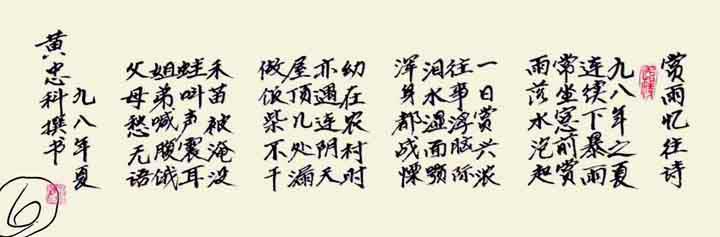 赏雨忆往诗
九八年之夏
连续下暴雨
常坐窓前赏
雨落水泡起
一日赏兴浓
往事浮脑际
泪水湿面颚
浑身都战慄
幼在农村时
亦遇连阴天
屋顶几处漏
做饭柴不干
禾苗被淹没
蛙叫声震耳
姐弟喊腹饿
父母愁无语
九八年夏
黄忠科撰书
6